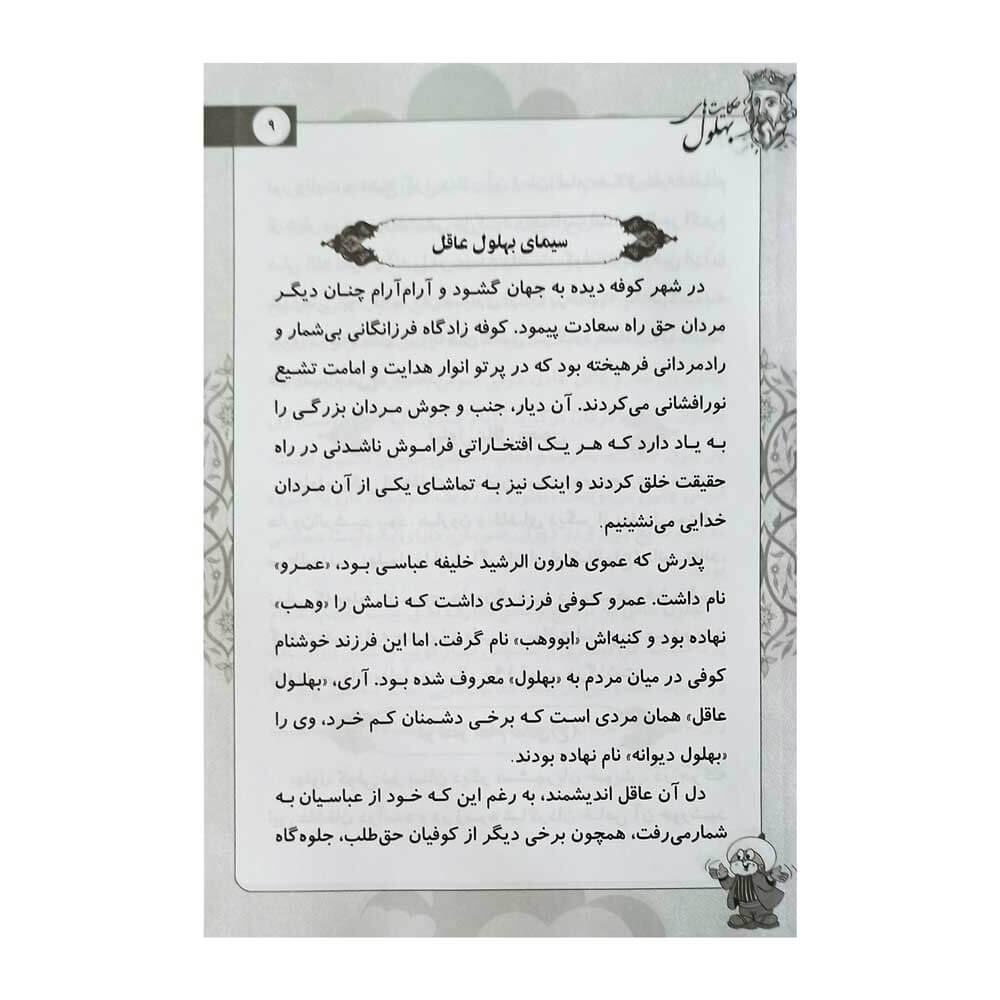 حکایت‌های
بهلول
۹
سیمای بهلول عاقل
در شهر کوفه دیده به جهان گشود و آرام‌آرام چنان دیگر
مردان حق راه سعادت پیمود. کوفه زادگاه فرزانگانی بی‌شمار و
رادمردانی فرهیخته بود که در پرتو انوار هدایت و امامت تشیع
نورافشانی می‌کردند. آن دیار، جنب و جوش مردان بزرگی را
به یاد دارد که هر یک افتخاراتی فراموش ناشدنی در راه
حقیقت خلق کردند و اینک نیز به تماشای یکی از آن مردان
خدایی می‌نشینیم.
پدرش که عموی هارون الرشید خلیفه عباسی بود، «عمرو»
نام داشت. عمرو کوفی فرزندی داشت که نامش را «وهب»
نهاده بود و کنیه‌اش «ابووهب» نام گرفت. اما این فرزند خوشنام
کوفی در میان مردم به «بهلول» معروف شده بود. آری، «بهلول
عاقل» همان مردی است که برخی دشمنان کم خرد، وی را
«بهلول دیوانه» نام نهاده بودند.
دل آن عاقل اندیشمند، به رغم این که خود از عباسیان به
شمارمی‌رفت، همچون برخی دیگر از کوفیان حق‌طلب، جلوه‌گاه